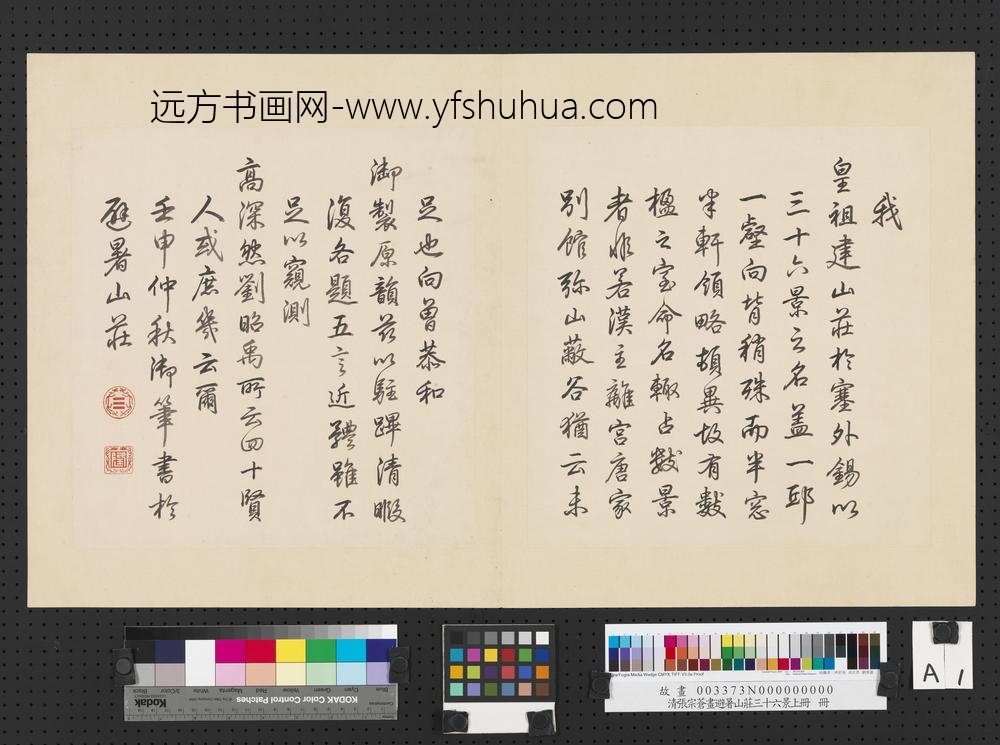 远方书画网-www.yfshuhua.com
我
皇祖建山莊於塞外錫以
三十六景之名盖一邱
一壑向背稍殊而半窓
半軒領略頓異故有數
楹之室命名輙占數景
者非若漢主離宮唐家
別館弥山蔽谷猶云未
足也向曽恭和
御製原韻茲以駐蹕清暇
復各題五言近體雖不
足以窺測
高深然劉昭禹所云四十賢
人或庶幾云爾
壬申仲秋御筆書於
避暑山莊
Kodak
KODAK Color Control Patches
Blue Cyan Green Yellow Red Magenta White 3/Color Black
故畫 003373N000000000
清張宗蒼畫避暑山莊三十六景上冊 冊
A 1